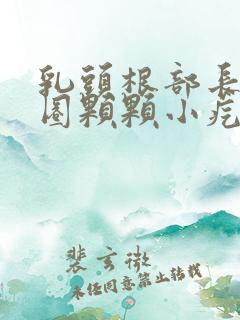 乳頭根部長
圈顆顆小疙
裴玄微
未任同意禁止转载